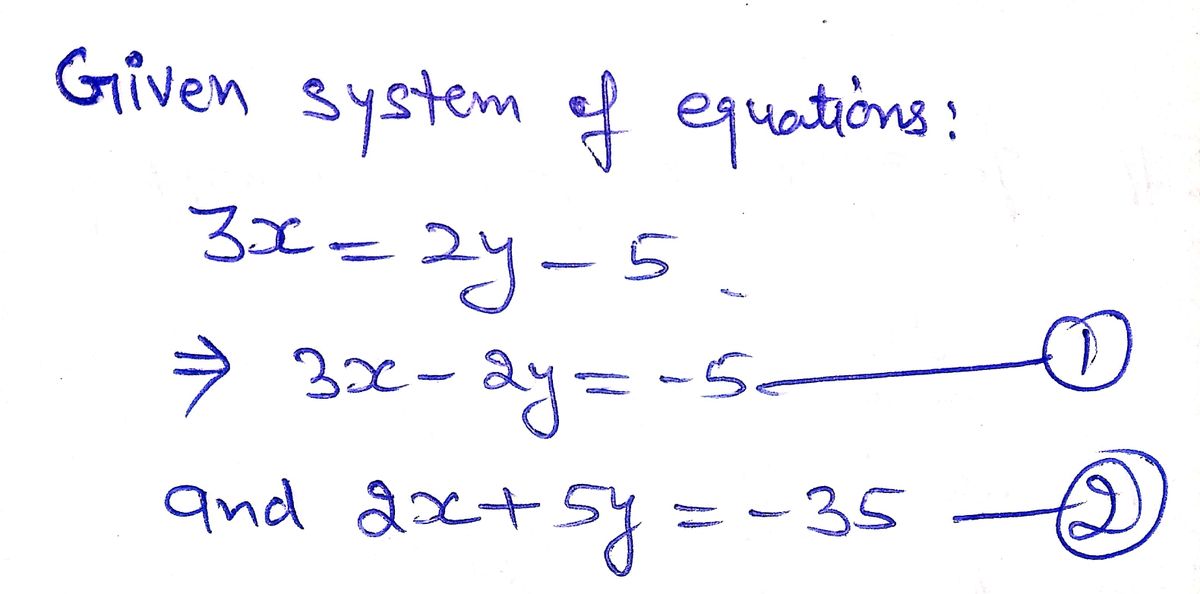 Given system of equations:
3x = 2y - 5
⇒ 3x - 2y = -5 — ①
and 2x + 5y = -35 — ②